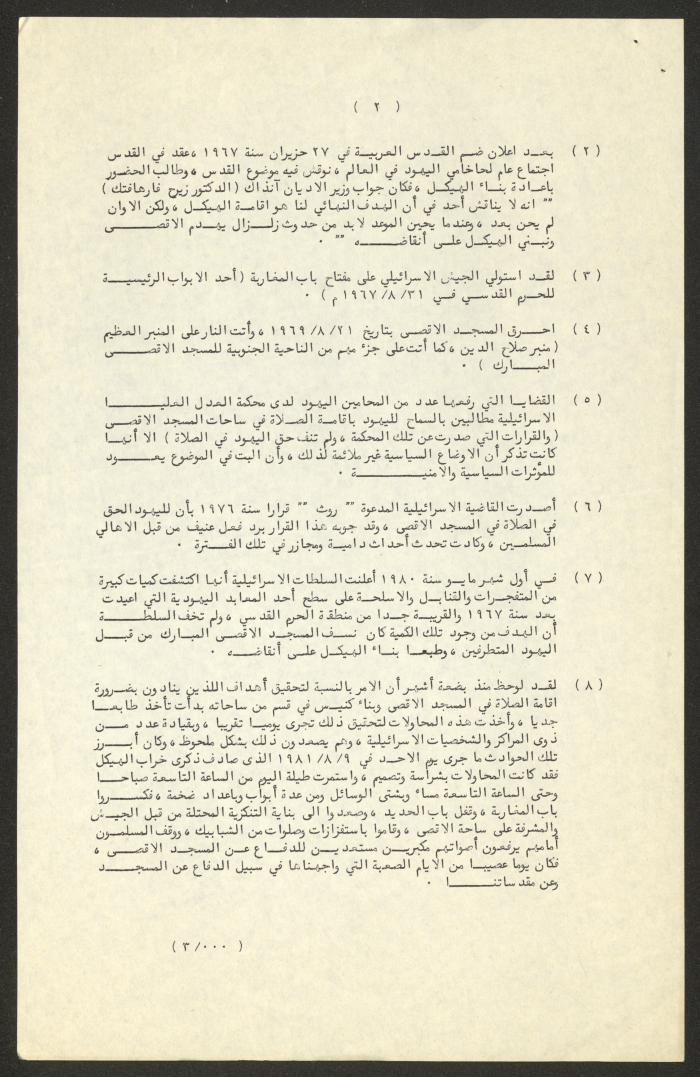 ( ٢ )
( ٢ ) بعد اعلان ضم القدس العربية في ٢٧ حزيران سنة ١٩٦٧ ، عقد في القدس
اجتماع عام لحاخامي اليهود في العالم ، نوقش فيه موضوع القدس ، وطالب الحضور
باعادة بناء الهيكل ، فكان جواب وزير الاديان آنذاك ( الدكتور زيرح فارهافتك )
"" انه لا يناقش أحد في أن الهدف النهائي لنا هو اقامة الهيكل ، ولكن الاوان
لم يحن بعد ، وعندما يحين الموعد لابد من حدوث زلزال يهدم الاقصى
ونبني الهيكل على أنقاضه "" .
( ٣ ) لقد استولي الجيش الاسرائيلي على مفتاح باب المغاربة ( أحد الابواب الرئيسية
للحرم القدسي في ٣١/٨/١٩٦٧ م ) .
( ٤ ) احرق المسجد الاقصى بتاريخ ٢١/٨/١٩٦٩ ، وأتت النار على المنبر العظيم
( منبر صلاح الدين ، كما أتت على جزء مهم من الناحية الجنوبية للمسجد الاقصى
المبارك ) .
( ٥ ) القضايا التي رفعها عدد من المحامين اليهود لدى محكمة العدل العليا
الاسرائيلية مطالبين بالسماح لليهود باقامة الصلاة في ساحات المسجد الاقصى
( والقرارات التي صدرت عن تلك المحكمة ، ولم تنف حق اليهود في الصلاة ) الا أنها
كانت تذكر أن الاوضاع السياسية غير ملائمة لذلك ، وأن البت في الموضوع يعود
للمؤثرات السياسية والامنية .
( ٦ ) أصدرت القاضية الاسرائيلية المدعوة "" روث "" قرارا سنة ١٩٧٦ بأن لليهود الحق
في الصلاة في المسجد الاقصى ، وقد جوبه هذا القرار برد فعل عنيف من قبل الاهالي
المسلمين ، وكادت تحدث أحداث دامية ومجازر في تلك الفترة .
( ٧ ) في أول شهر مايو سنة ١٩٨٠ أعلنت السلطات الاسرائيلية أنها اكتشفت كميات كبيرة
من المتفجرات والقنابل والاسلحة على سطح أحد المعابد اليهودية التي اعيدت
بعد سنة ١٩٦٧ والقريبة جدا من منطقة الحرم القدسي ، ولم تخف السلطة
أن الهدف من وجود تلك الكمية كان نسف المسجد الاقصى المبارك من قبل
اليهود المتطرفين ، وطبعا بناء الهيكل على أنقاضه .
( ٨ ) لقد لوحظ منذ بضعة أشهر أن الامر بالنسبة لتحقيق أهداف اللذين ينادون بضرورة
اقامة الصلاة في المسجد الاقصى وبناء كنيس في قسم من ساحاته بدأت تأخذ طابعا
جديا ، وأخذت هذه المحاولات لتحقيق ذلك تجرى يوميا تقريبا ، وبقيادة عدد من
ذوى المراكز والشخصيات الاسرائيلية ، وهم يصعدون ذلك بشكل ملحوظ ، وكان أبرز
تلك الحوادث ما جرى يوم الاحد في ٩/٨/١٩٨١ الذى صادف ذكرى خراب الهيكل
فقد كانت المحاولات بشراسة وتصميم ، واستمرت طيلة اليوم من الساعة التاسعة صباحا
وحتى الساعة التاسعة مساء وبشتى الوسائل ومن عدة أبواب وباعداد ضخمة ، فكسروا
باب المغاربة ، وقفل باب الحديد ، وصعدوا الى بناية التنكزية المحتلة من قبل الجيش
والمشرفة على ساحة الاقصى ، وقاموا باستفزازات وصلوات من الشبابيك ، ووقف المسلمون
أمامهم يرفعون أصواتهم مكبرين مستعدين للدفاع عن المسجد الاقصى ،
فكان يوما عصيبا من الايام الصعبة التي واجهناها في سبيل الدفاع عن المسجد
وعن مقدساتنا .
( ٣/٠٠٠ )